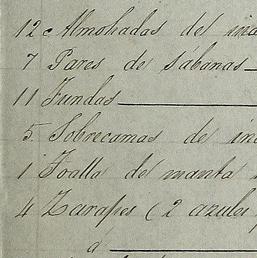 12 Almohadas del
7 Pares de sábanas
11 Fundas
5 Sobrecamas de
1 Toalla de manta
4 Zarapes (2 azules
a